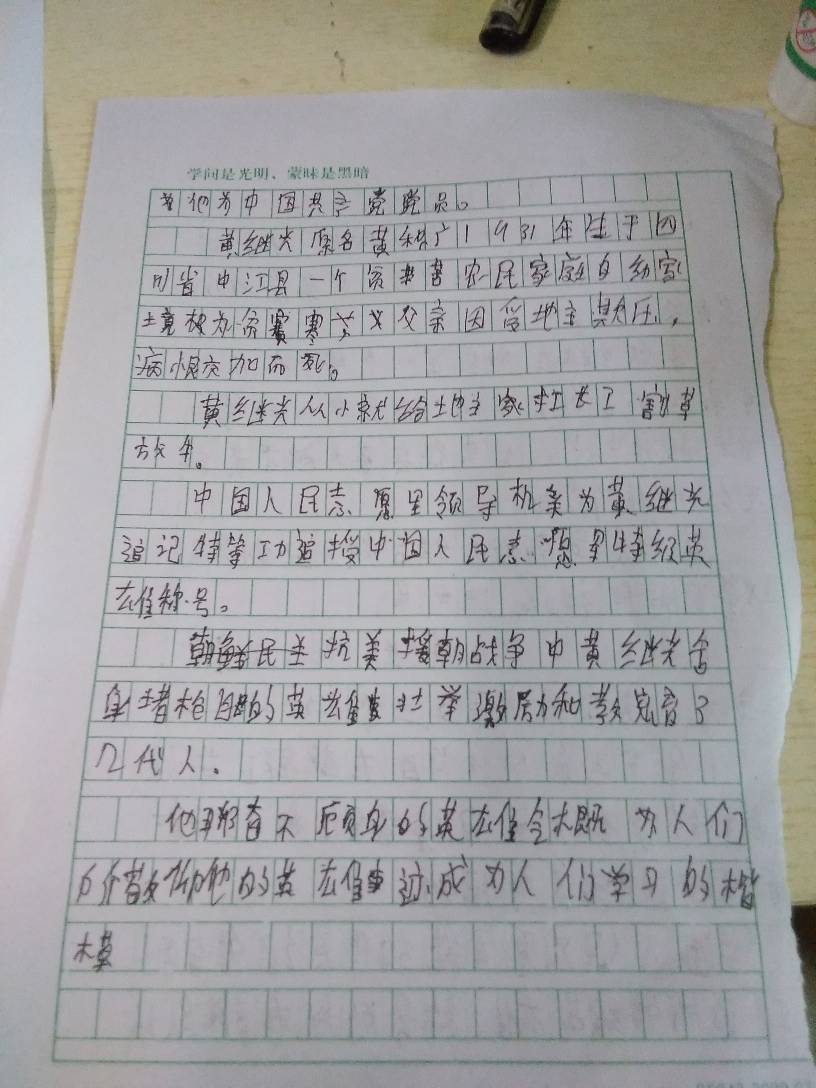 学问是光明、蒙昧是黑暗
他为中国共产党党员。
黄继光原名黄积广1931年生于四
川省中江县一个贫苦农民家庭自幼家
境极为贫寒父亲因受地主欺压,
病恨交加而死。
黄继光从小就给地主家扛长工割草
放牛。
中国人民志愿军领导机关为黄继光
追记特等功追授中国人民志愿军特级英
雄称号。
抗美援朝战争中黄继光舍
身堵枪眼的英雄壮举激励和教育了
几代人。
他那奋不顾身的英雄气概为人们
所敬仰他的英雄事迹成为人们学习的楷
模